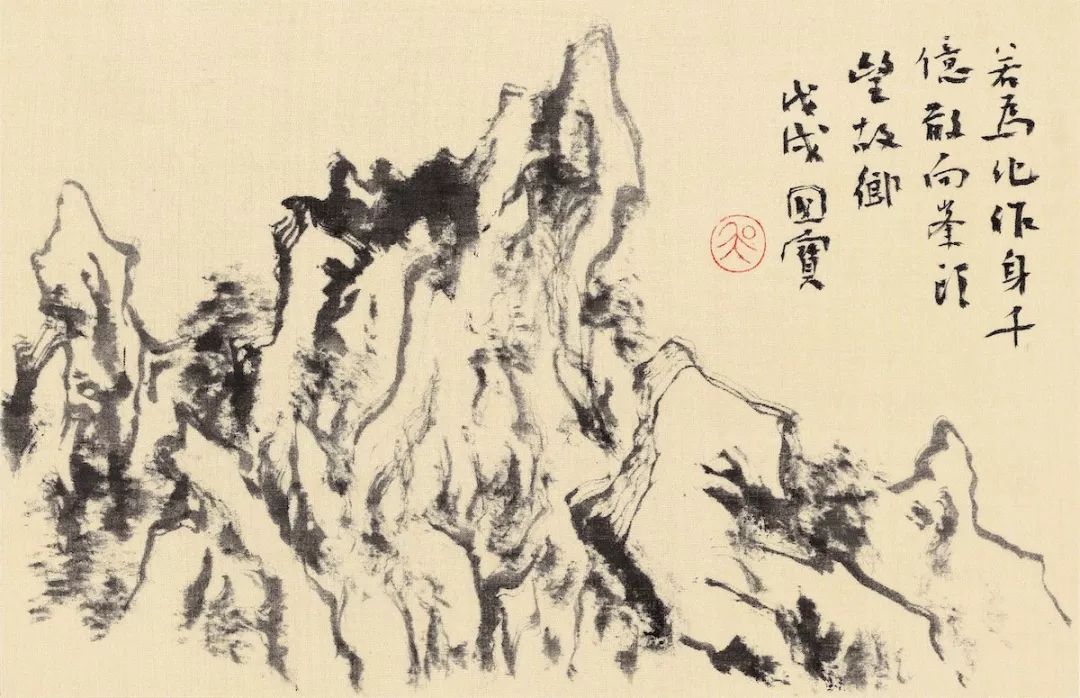 若為化作身千
億散向峯頭
望故鄉
戊戌 回寶